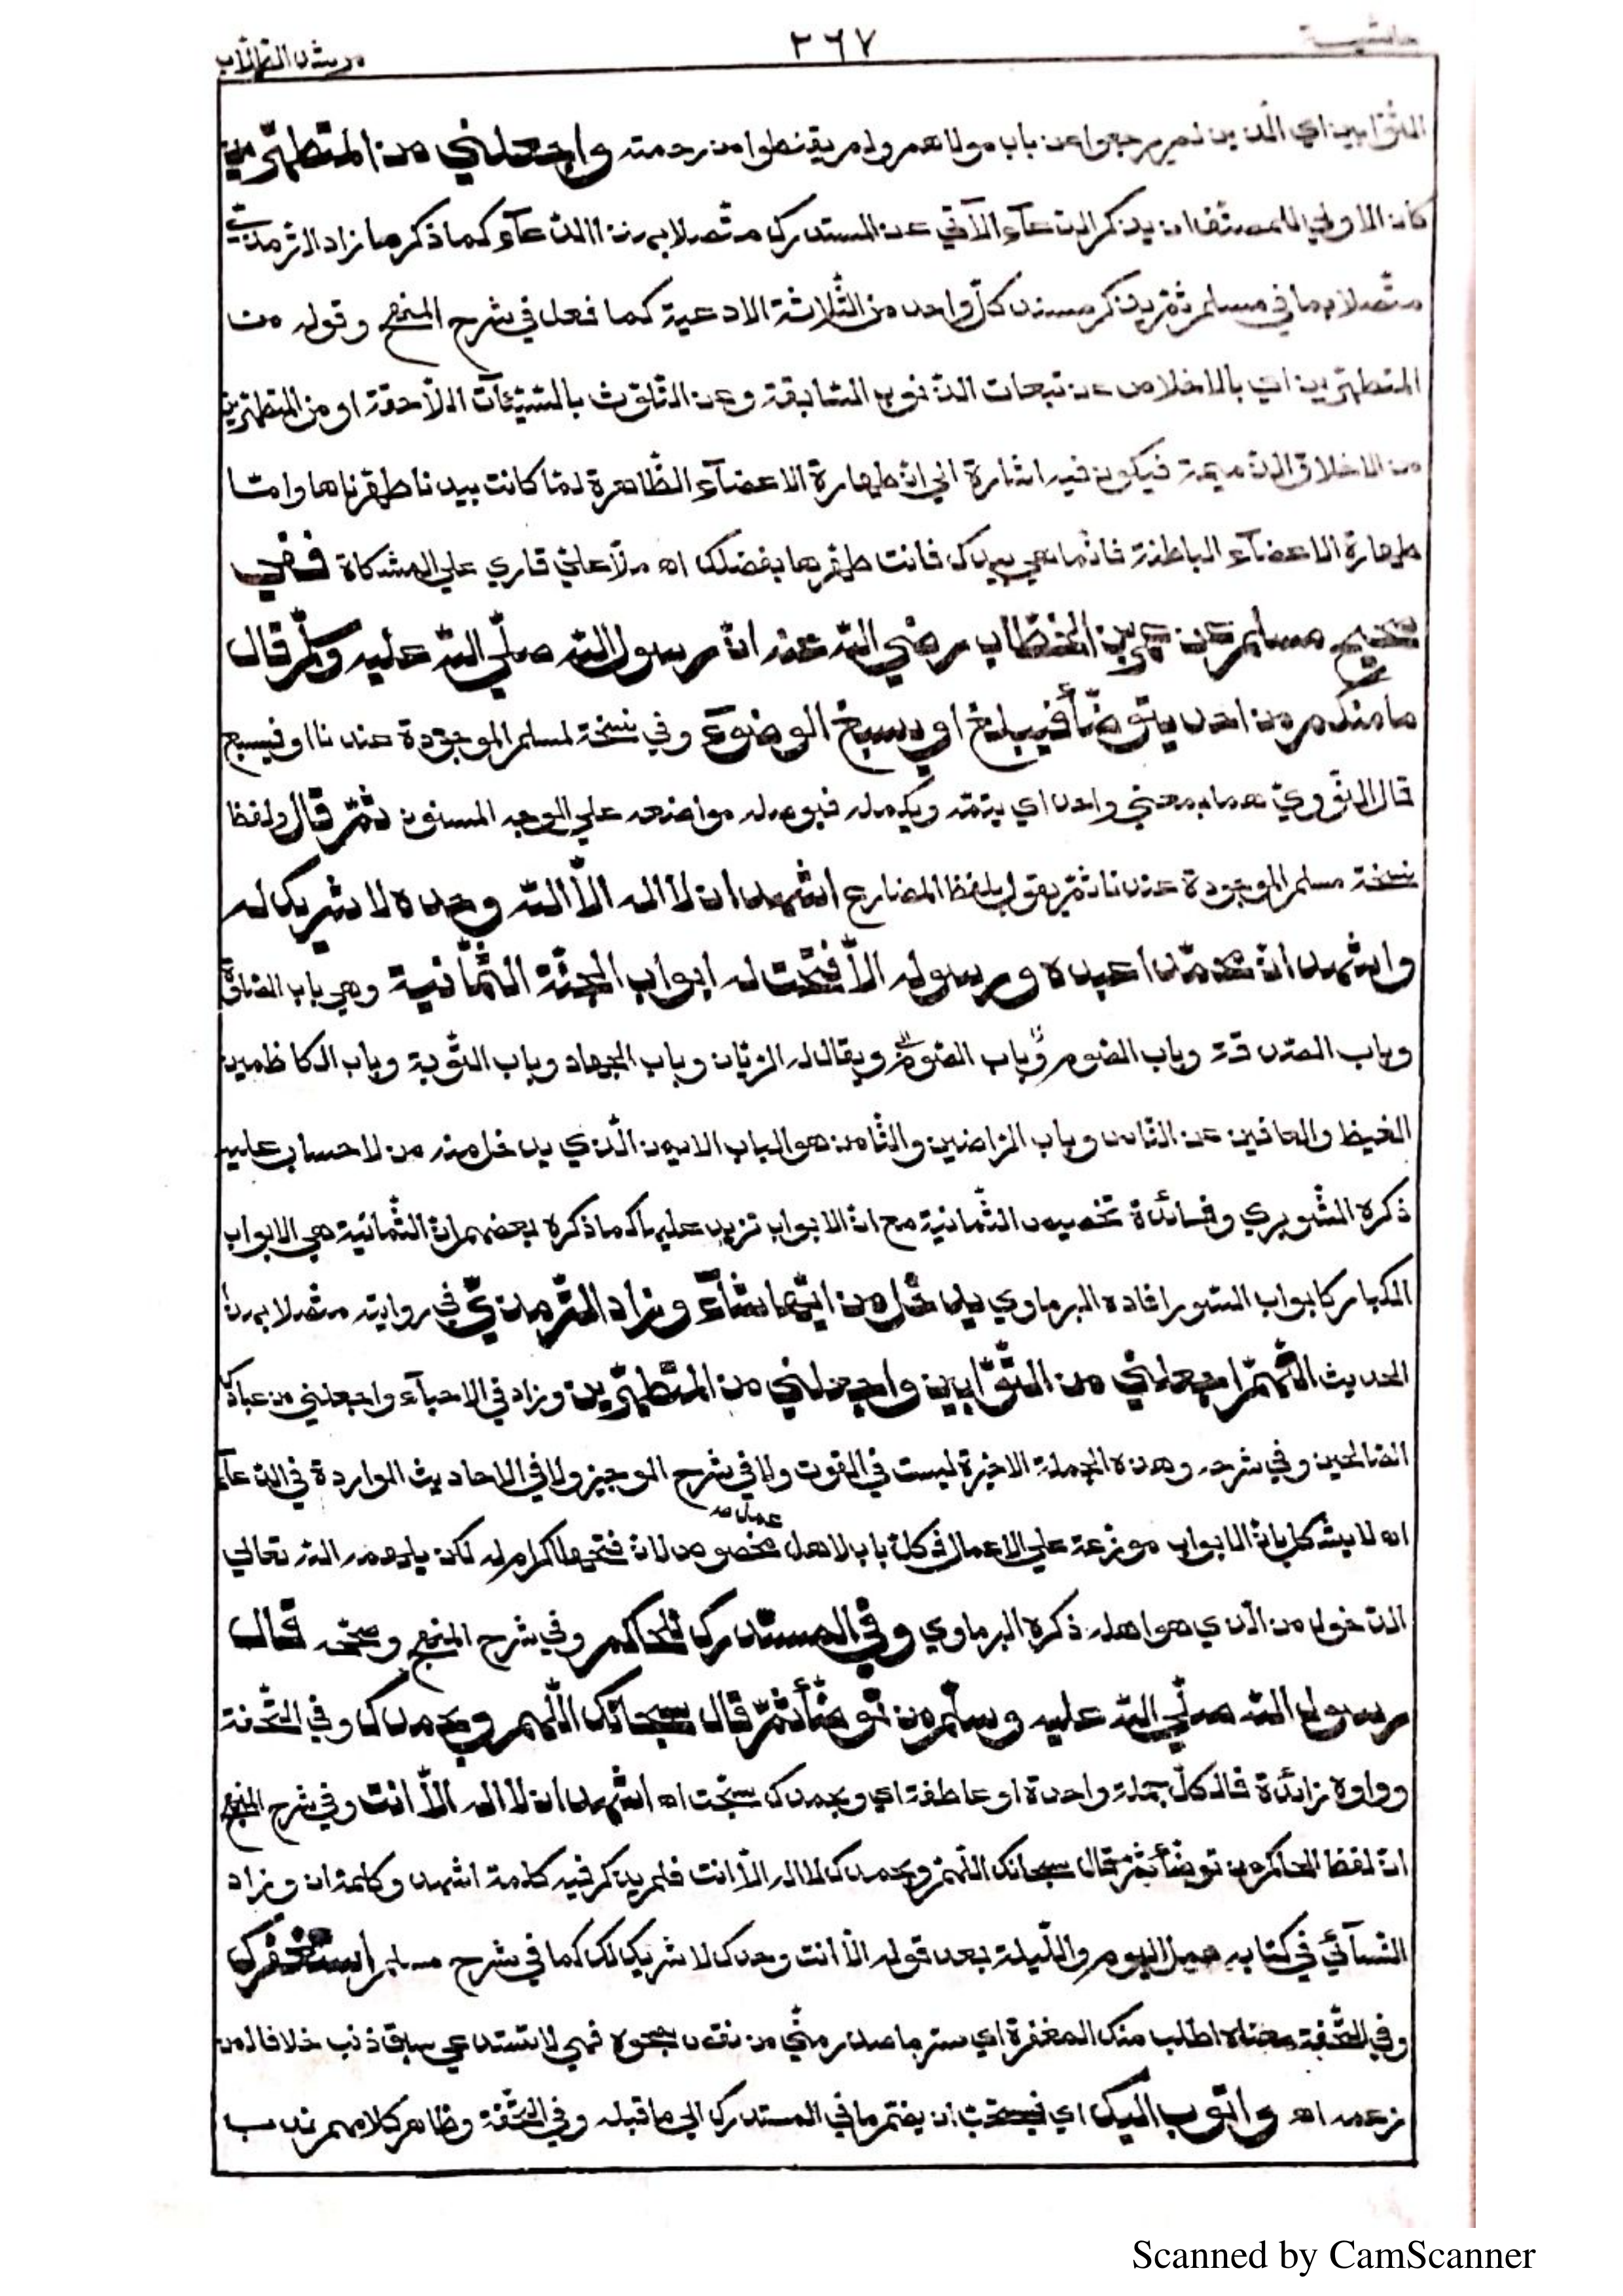 حاشية ٣٦٧ مرشد الطلاب
التوّابين اي الّذين لم يرجعوا عن باب مولاهم ولم يقنطوا من رحمته واجعلني من المتطهّرين
كان الاولى للمصنّف ان يذكر الدعآء الآتي عن المستدرك متّصلا بهذا الدّعآء كما ذكر ما زاد الترمذيّ
متّصلا بما في مسلم ثمّ يذكر مسند كلّ واحد من الثّلاثة الادعية كما فعل في شرح المنهج وقوله من
المتطهّرين اي بالاخلاص عن تبعات الذّنوب السّابقة وعن التّلوّث بالسّيّئات اللّاحقة او من المتطهّرين
من الاخلاق الذّميمة فيكون فيه اشارة الى انّ طهارة الاعضآء الظّاهرة لمّا كانت بيدنا طهّرناها وامّا
طهارة الاعضآء الباطنة فانّما هي بيدك فانت طهّرها بفضلك اه ملّا علي قاري على المشكاة ففي
صحيح مسلم عن عمر بن الخطّاب رضي الله عنه انّ رسول الله صلّى الله عليه وسلّم قال
ما منكم من احد يتوضّأ فيبلغ او يسبغ الوضوء وفي نسخة لمسلم الموجودة عندنا او فيسبغ
قال النّوويّ هما بمعنى واحد اي يتمّه ويكمله فيوصله مواضعه على الوجه المسنون ثمّ قال ولفظ
نسخة مسلم الموجودة عندنا ثمّ يقول بلفظ المضارع اشهد ان لا اله الّا الله وحده لا شريك له
واشهد انّ محمّدا عبده ورسوله الّا فتحت له ابواب الجنّة الثّمانية وهي باب الصّلاة
وباب الصّدقة وباب الصّوم وباب الصّوم ويقال له الرّيّان وباب الجهاد وباب التّوبة وباب الكاظمين
الغيظ والعافين عن النّاس وباب الرّاضين والثّامن هو الباب الايمن الّذي يدخل منه من لا حساب عليه
ذكره الشّوبري وفائدة تخصيص الثّمانية مع انّ الابواب تزيد عليها كما ذكره بعضهم انّ الثّمانية هي الابواب
الكبار كابواب السّور افاده البرماوي يدخل من ايّها شآء وزاد التّرمذيّ في روايته متّصلا بهذا
الحديث اللّهمّ اجعلني من التّوّابين واجعلني من المتطهّرين وزاد في الاحيآء واجعلني من عبادك
الصّالحين وفي شرحه وهذه الجملة الاخيرة ليست في القوت ولا في شرح الوجيز ولا في الاحاديث الواردة في الدّعآء
اه لا يشكل بانّ الابواب موزعة على الاعمال فكلّ باب لاهل عمل مخصوص لانّ فتحها اكرام له لكن يلهمه الله تعالى
الدّخول من الّذي هو اهله ذكره البرماوي وفي المستدرك للحاكم وفي شرح المنهج وصحّحه قال
رسول الله صلّى الله عليه وسلّم من توضّأ ثمّ قال سبحانك اللّهمّ وبحمدك وفي التّحفة
وواوه زائدة فالكلّ جملة واحدة او عاطفة اي وبحمدك سبّحت اه اشهد ان لا اله الّا انت وفي شرح المنهج
انّ لفظ الحاكم من توضّأ ثمّ قال سبحانك اللّهمّ وبحمدك لا اله الّا انت فلم يذكر فيه كلمة اشهد وكلمة ان وزاد
النّسآئي في كتابه عمل اليوم واللّيلة بعد قوله الّا انت وحدك لا شريك لك كما في شرح مسلم استغفرك
وفي التّحفة معناه اطلب منك المغفرة اي ستر ما صدر منّي من نقص بمحوه فهي لا تستدعي سبق ذنب خلافا لمن
زعمه اه واتوب اليك اي فيستحبّ ان يضمّ ما في المستدرك الى ما قبله وفي التّحفة وظاهر كلامهم ندب
Scanned by CamScanner